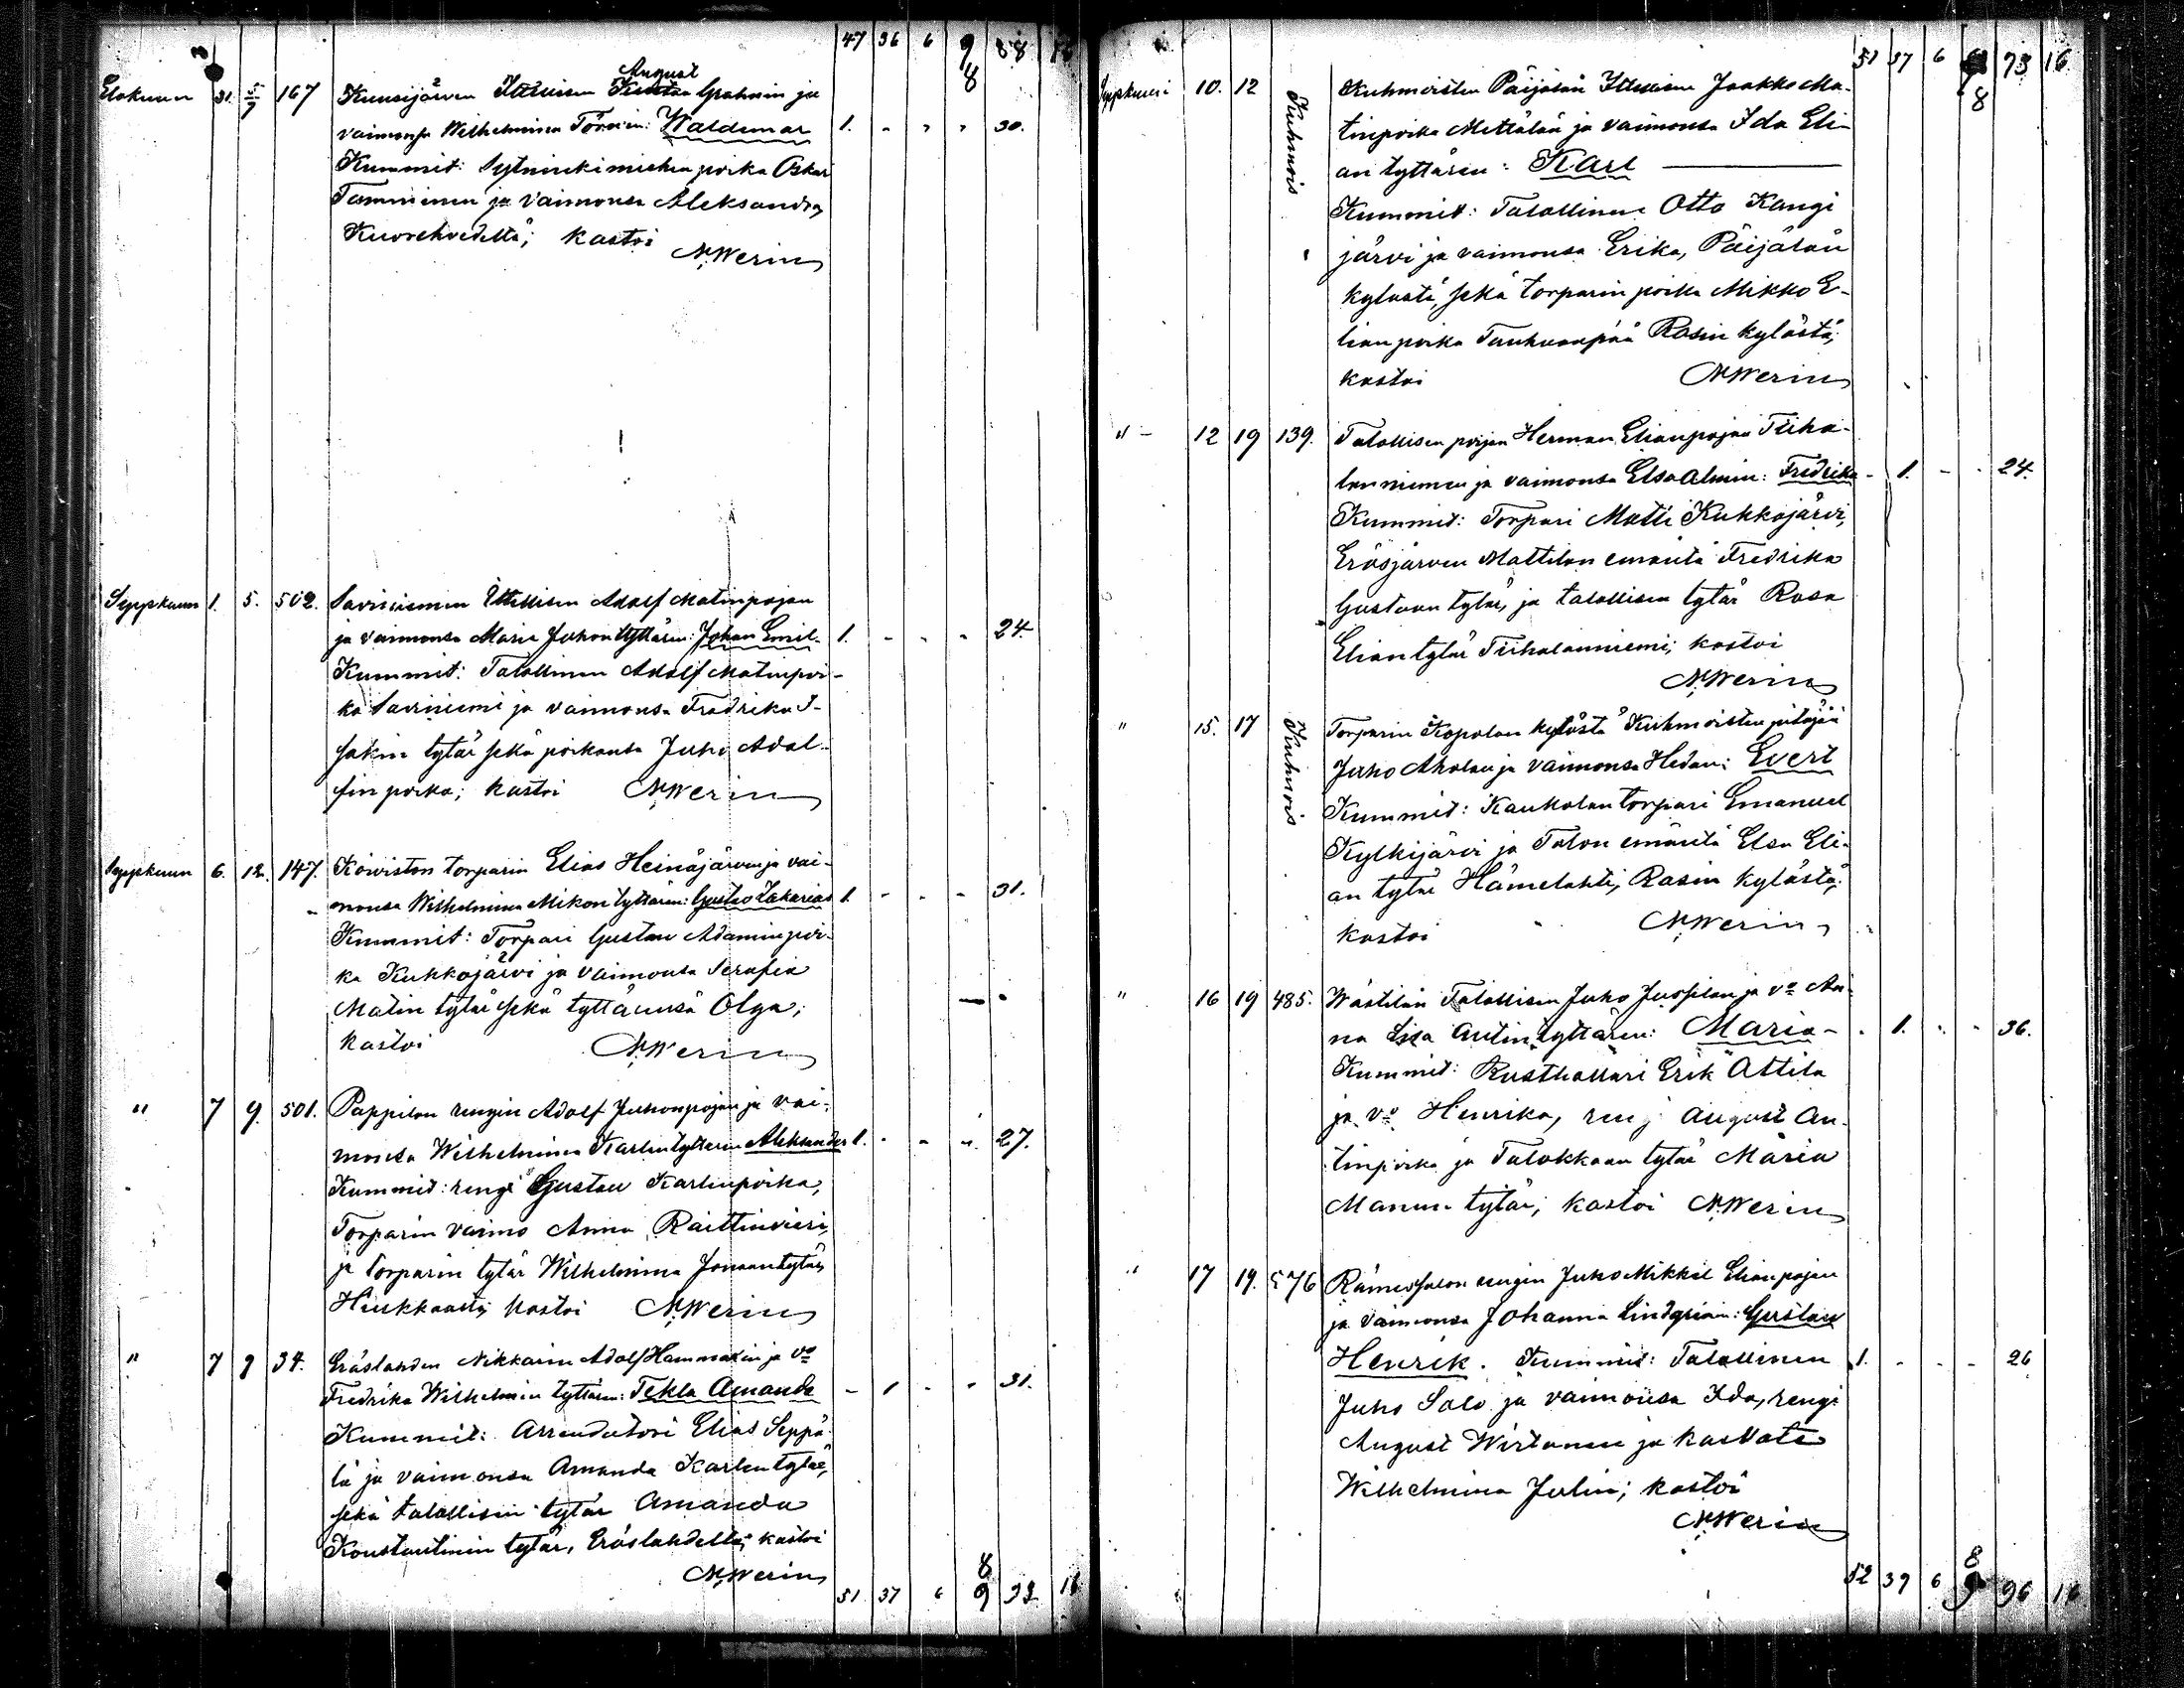 47 36 6 9 88 16
8
Elokuun 31. 5/7 167 Kuusijärven Itsellisen August Grahnin ja
vaimonsa Wilhelmina Törnin: Waldemar 1. - - - 30.
Kummit: Sytmiekimiehen poika Oskar
Tamminen ja vaimonsa Aleksandra
Kuorehvedeltä; kastoi
N. Werin
Syyskuun 1. 5. 502. Saviniemen Itsellisen Adolf Matinpojan
ja vaimonsa Maria Juhontyttären: Johan Emil. 1. - - - 24.
Kummit: Talollinen Adolf Matinpoi-
ka Saviniemi ja vaimonsa Fredrika I-
sakin tytär sekä poikansa Juho Adol-
fin poika; kastoi N. Werin
Syyskuun 6. 12. 147. Koiviston torparin Elias Heinäjärven ja vai-
monsa Wilhelmina Mikon tyttären: Gustav Zakarias 1. - - - 31.
Kummit: Torpari Gustav Adamin poi-
ka Kukkojärvi ja vaimonsa Serafia
Matin tytär sekä tyttärensä Olga;
kastoi N. Werin
" 7 9. 501. Pappilan rengin Adolf Juhonpojan ja vai-
monsa Wilhelmina Karlintyttären Aleksander 1. - - - 27.
Kummit: rengi Gustav Karlinpoika,
Torparin vaimo Anna Raittinvieri,
ja torparin tytär Wilhelmina Jonaantytär
Hirkkaasta; kastoi N. Werin
" 7 9 34. Eräslahden Nikkarin Adolf Hammarin ja vo
Fredrika Wilhelmin tyttären: Tekla Amanda - 1 - - 31.
Kummit: Arrendatori Elias Seppä-
lä ja vaimonsa Amanda Karlen tytär,
sekä talollisen tytär Amanda
Konstantinin tytär, Eräslahdelta; kastoi
N. Werin
8
51 37 6 9 93 16
51 37 6 9 93 16
8
Syyskuun 10. 12 Kuhmois Kuhmoisten Päijälän Itsellisen Jaakko Ma-
tinpoika Mettälän ja vaimonsa Ida Eli-
an tyttären: Karl
Kummit: Talollinen Otto Kangi
järvi ja vaimonsa Erika, Päijälän
kylästä, sekä torparin poika Mikko E-
lian poika Tauhuanpää Rasin kylästä;
kastoi N. Werin
" - 12 19 139. Talollisen pojan Herman Elianpojan Tiiha-
lanniemen ja vaimonsa Elsa Almin: Fredrika - 1. - - 24.
Kummit: Torpari Matti Kukkojärvi,
Eräsjärven Mattilan emäntä Fredrika
Gustaan tytär, ja talollisen tytär Rosa
Elian tytär Tiihalanniemi; kastoi
N. Werin
" 15. 17 Kuhmois Torparin Kopolan kylästä Kuhmoisten pitäjää
Juho Aholan ja vaimonsa Hedan: Evert
Kummit: Kaukolan torpari Emanuel
Kylkijärvi ja Talon emäntä Elsa Eli-
an tytär Hämelahti, Rasin kylästä;
kastoi N. Werin
" 16 19 485. Wästilän Talollisen Juho Jussilan ja vo An-
na Lisa Antin tyttären: Maria - - 1. - - 36.
Kummit: Rusthollari Erik Attila
ja vo Henrika, rengi August An-
tinpoika ja Talokkaan tytär Maria
Manun tytär; kastoi N. Werin
" 17 19. 576 Rämessalon rengin Juho Mikkel Elian pojan
ja vaimonsa Johanna Lindgrénin: Gustav
Henrik. Kummit: Talollinen 1. - - - 26
Juho Salo ja vaimonsa Ida, rengi
August Wirtanen ja kasvate
Wilhelmina Julin; kastoi
N. Werin
8
52 39 6 9 96 16